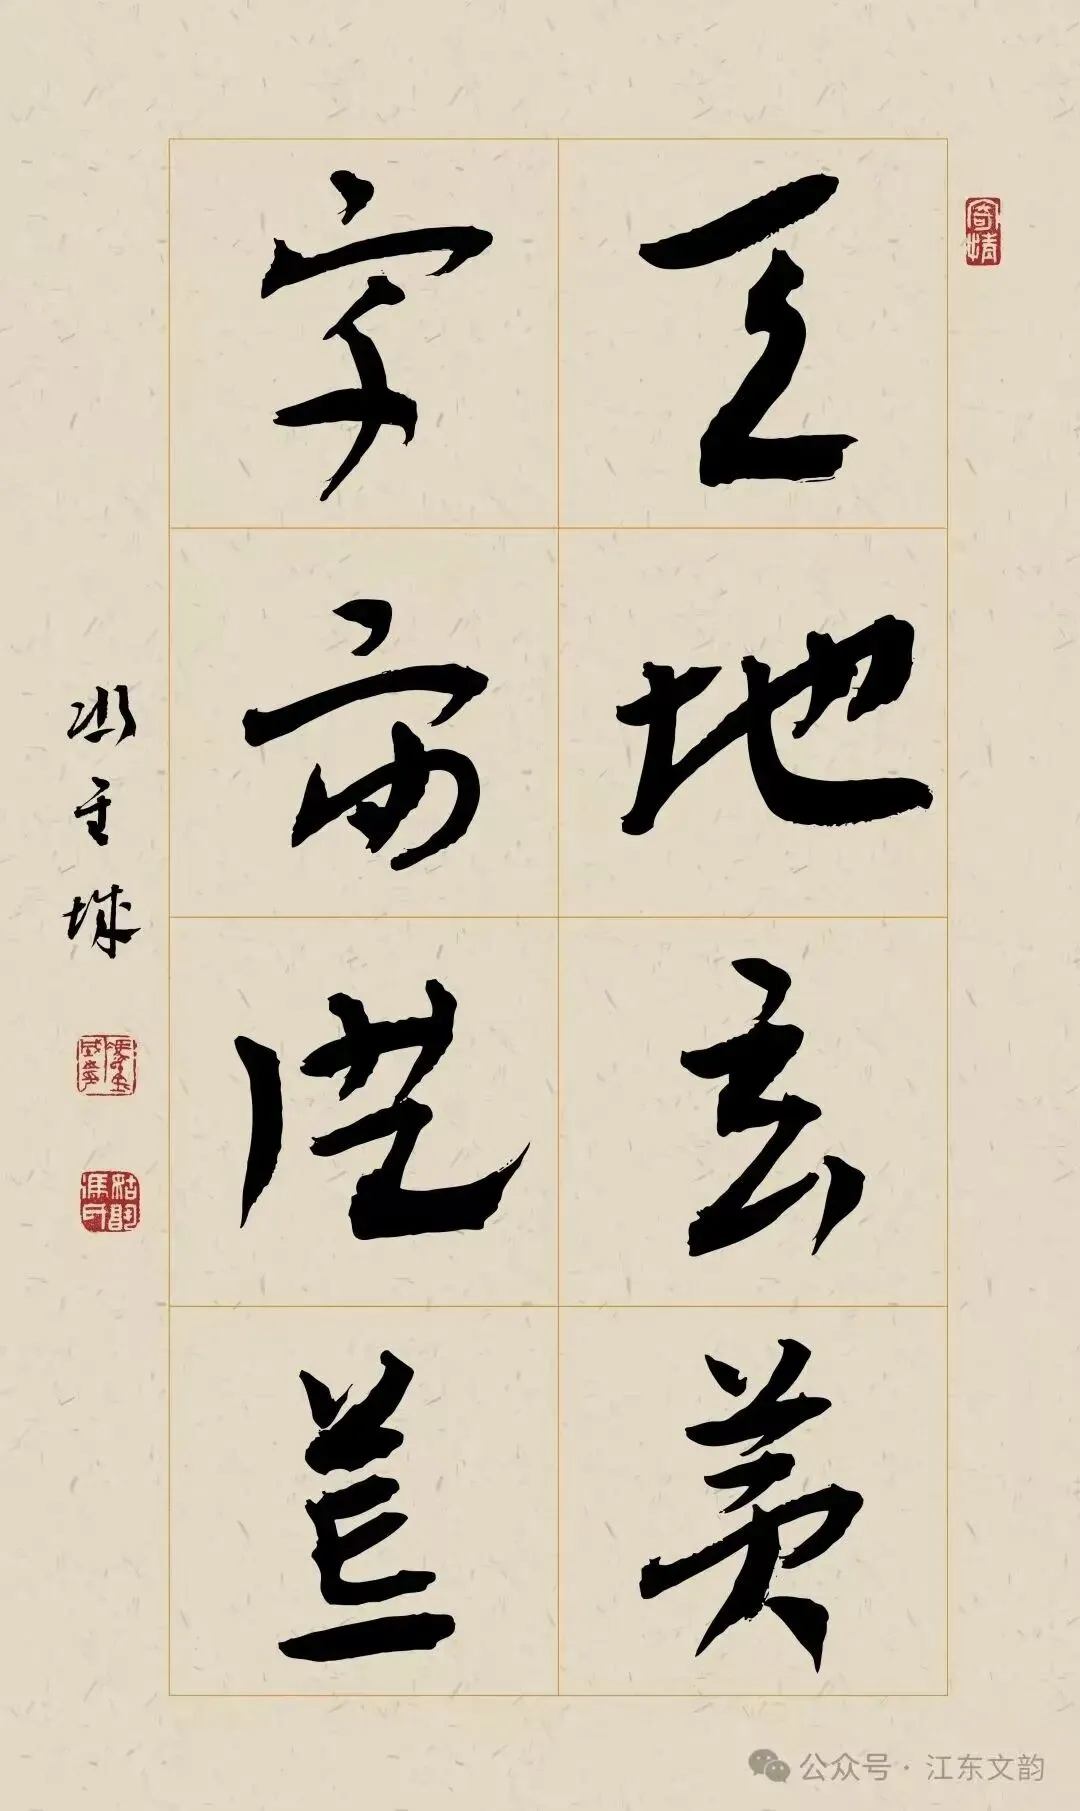 天地玄黄
宇宙洪荒
寄情
公众号 · 江东文韵